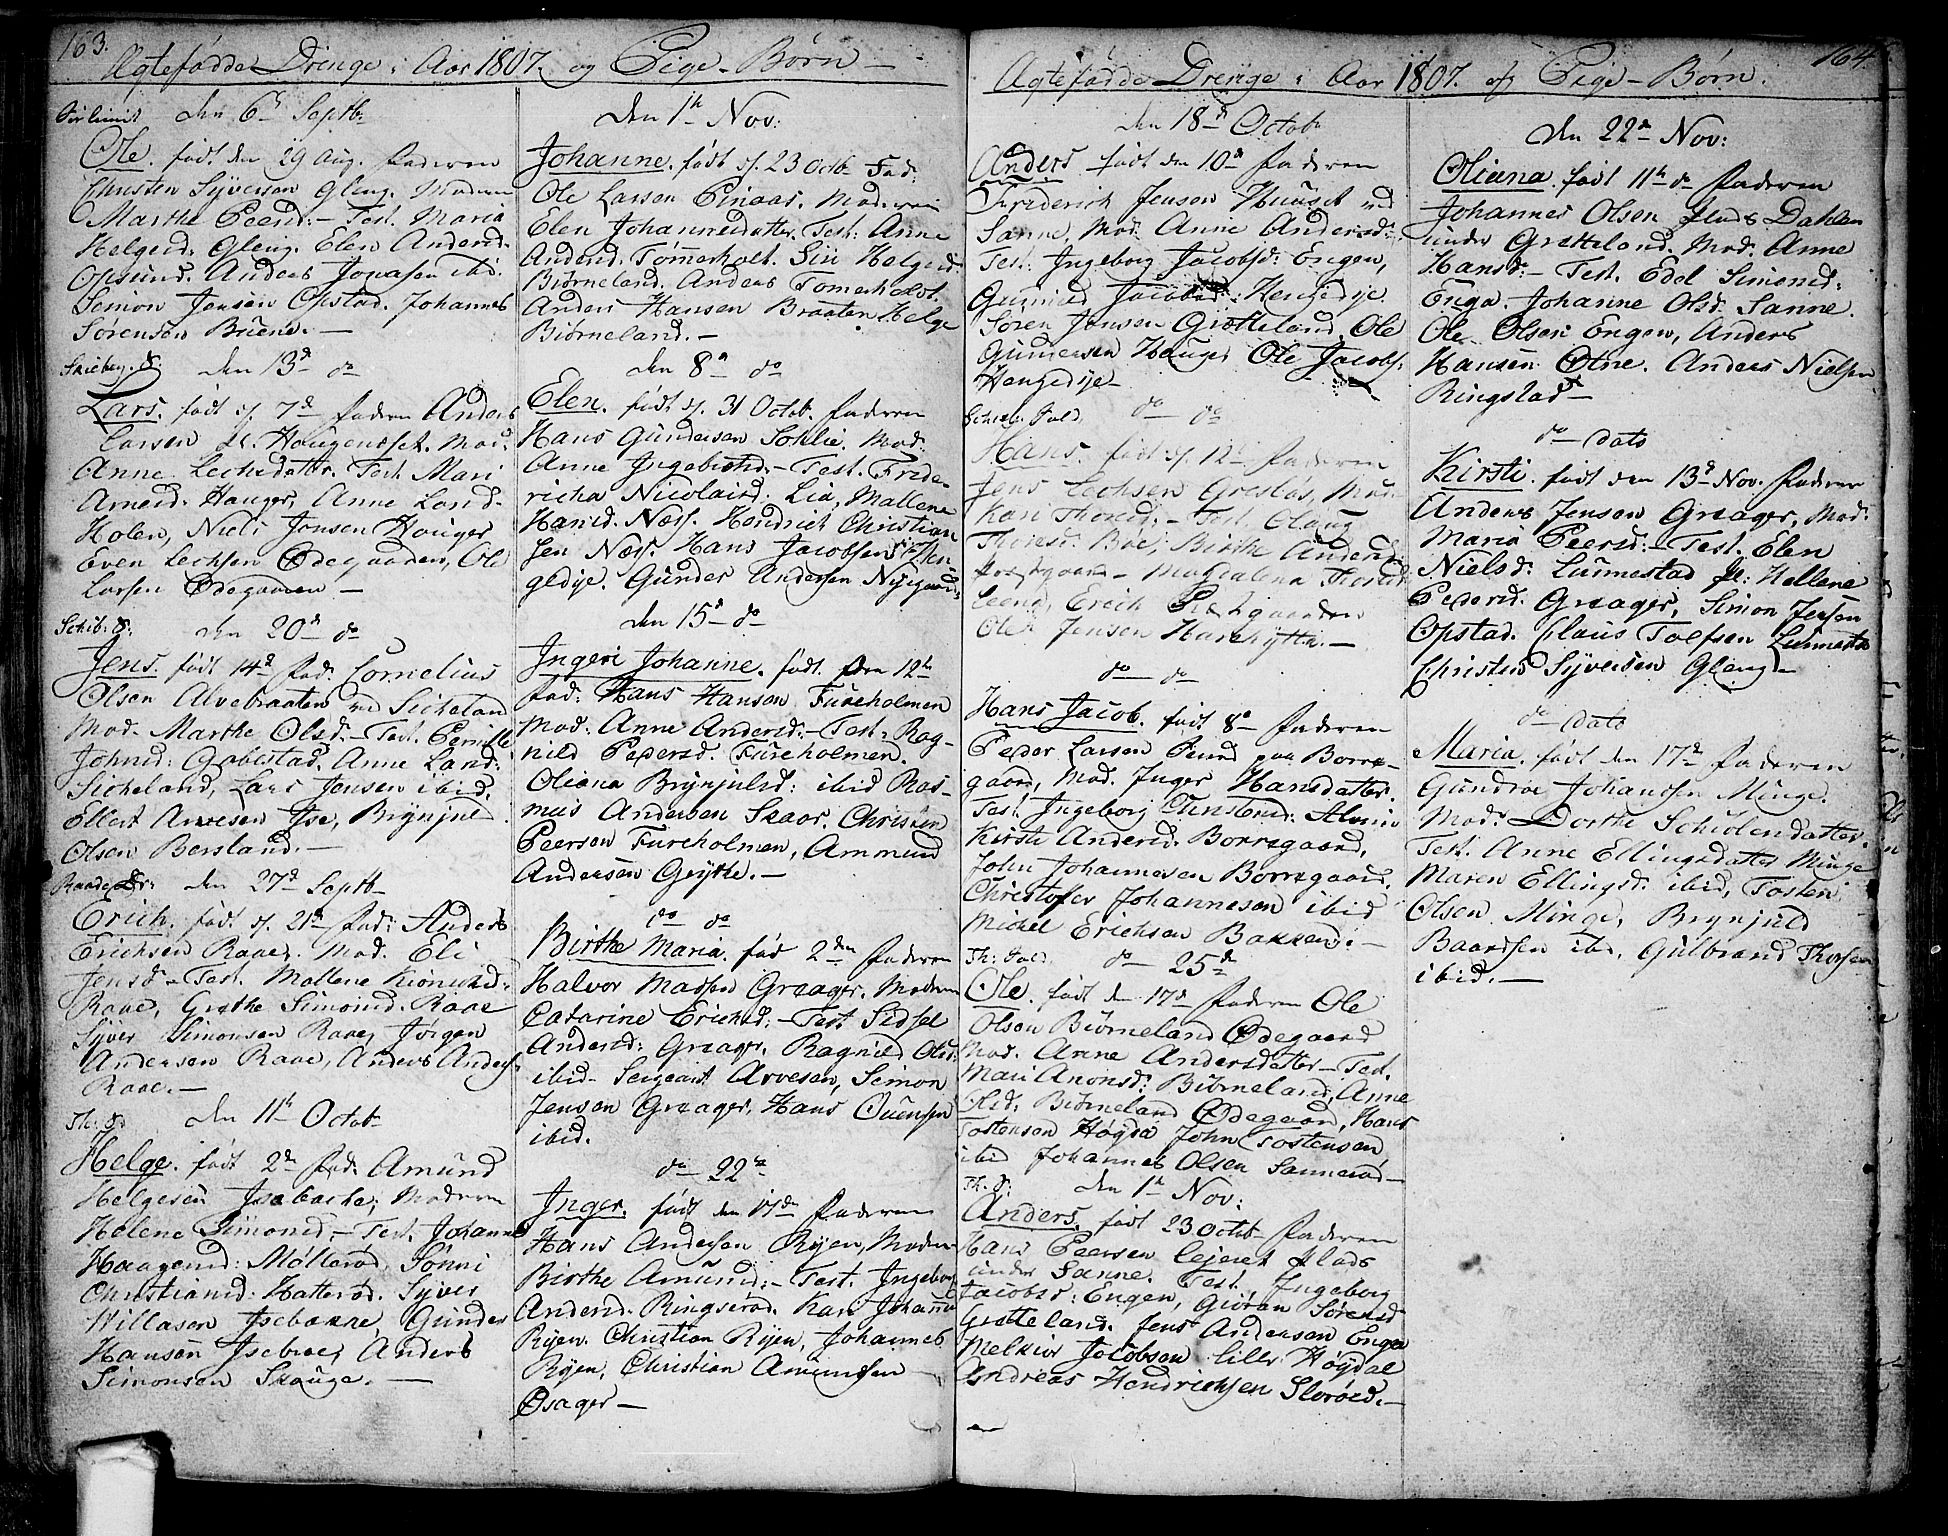 163.
Ægtefødde Drenge i Aar 1807. og Pige-Børn
den 6 Septb
Ole. født den 29 Aug. Faderen
Christen Syversen Gleng. Moderen
Marthe Peersd:- Test. Maria
Helgesd: Gleng. Elen Andersd.
Opsund. Anders Jonasen ibd.
Simon Jensen Opstad. Johannes
Sørensen Bruene.-
Skieberg. K: den 13d do
Lars. født d. 7d Faderen Anders
Larsen Haugendset. Mod:
Anne Lechsdatter. Test. Mari
Arnesd. Hauger, Anne Lars d.
Holen, Niels Jonsen Hauger
Even Lechsen Ødegaarden, Ole
Larsen Ødegaarden -
Schib. K: den 20d do
Jens. født 14d Fad. Cornelius
Olsen Alvebraaten ved Sicheland
Mod. Marthe Olsd.- Test. Pernille
Johnsd: Gabestad. Anne Larsd:
Sicheland, Lars Jensen ibid.
Ellert Arvesen Ise, Brynjuld
Olsen Bersland.-
Raade K: den 27d Septb
Erich. født d. 21d Fad: Anders
Erichsen Raae. Mod. Eli
Jensd - Test. Mallene
Raae, Grethe Simonsd. Raae
Syver Simonsen Raae, Jørgen
Andersen Raae, Anders Anders
Raae.-
Th: K: den 11t Octob
Helge. født 2den Fad. Amund
Helgesen Isebache, Moderen
Helene Simonsd.- Test. Johanne
Haagensd: Møllerød. Sønni
Christiansd: Hatterød. Syver
Willasen Isebakke, Gunder
Hansen Isebroe, Anders
Simonsen Skouge. -
Den 1t Nov:
Johanne. født d. 23 Octb Fad:
Ole Larsen Pinaas. Moderen
Elen Johannesdatter. Test: Anne
Andersd. Tømmerholt. Siri Helgesd.
Biørneland. Anders Tomerholt.
Anders Hansen Braaten Helge
Biørneland.-
den 8de do
Elen. født d. 31 Octob. Faderen
Hans Gundersen Sohlie. Mod:
Anne Ingebretsd.- Test. Fride-
richa Nicolaisd. Lia, Mallene
Hansd. Næss. Hendrich Christian
sen Næss. Hans Jacobsen Hen
gedije. Gunder Andersen Nygaard
den 15d do
Ingeri Johanne. født den 12te
Fad: Hans Hansen Fureholmen
Mod: Anne Andersd.- Test: Rag-
nild Pedersd. Fureholmen.
Oliana Brynjulsd: ibid Ras-
mus Andersen Skaar. Christen
Peersen Fureholmen, Ammund
Andersen Grytte.-
do do
Birthe Maria. fød 2den Faderen
Halvor Madsen Graager. Moderen
Catarine Erichsd:- Test Sidsel
Andersd: Graager. Ragnild Olsd:
ibid- Sergeant Arvesen, Simon
Jensen Graager. Hans Ouensen
ibid.
do 22de
Inger. født den 17de Faderen
Hans Andersen Ryen, Moderen
Birthe Amunsd:- Test. Ingeborg
Andersd. Ringserød. Kari Johanne
Ryen. Christian Ryen, Johannes
Ryen, Christian Amundsen
Øsager-
164.
Ægtefødde Drenge i Aar 1807. og Pige-Børn.
den 18d Octob
Anders født den 10d Faderen
Friderich Jensen Huuset ved
Sanne, Mod: Anne Andersd:
Test. Ingeborg Jacobsd: Engen,
Gunild Jacobsd: Hengedije
Søren Jensen Grætteland, Ole
Gundersen Hauger Ole Jacobs.
Hengedije-
do do
Hans. født d. 12t Faderen
Jens Lechsen Greslös, Mod:
Kari Thoresd:- Test. Olaug
Thoresd: Boe, Birthe Andersd:
Præstgaard- Magdalena Thoresd:
Leeng, Erich Præstgaarden
Ole Jensen Harehytte.-
do do
Hans Jacob. født 8de Faderen
Peder Larsen Svend paa Borre-
gaard, Mod. Inger Hansdatter.
Test. Ingeborg Alvim
Kirsti Andersd. Borregaard,
John Johannesen Borregaard
Christofer Johannesen ibid
Michel Erichsen Bakken.-
Th: do 25d
Ole. født den 17d Faderen Ole
Olsen Biørneland Ødegaard
Mod. Anne Andersdatter- Test.
Mari Anonsd: Biørneland, Anne
Olsd: Biørneland Ødegaard, Hans
Tostensen Høgda John Tostensen
ibid Johannes Olsen Sannerød-
Th. K: den 1t Nov:
Anders. født 23 Octb- Faderen
Hans Peersen lejeret Plads
under Sanne. Test. Ingeborg
Jacobsd: Engen, Giøran Sørensd
Grætteland. Jens Andersen Enge
Melkior Jacobsen lille Høydal
Andreas Hendrichsen Slorøed.-
den 22d Nov:
Oliana født 11te do Faderen
Johannes Olsen Dahlen
under Grætteland. Mod. Anne
Hansd:- Test. Edel Simonsd:
Enga. Johanne Olsd. Sanne.
Ole Olsen Engen, Anders
Hansen Otne. Anders Nielsen
Ringstad-
do dato
Kirsti født den 13d Nov. Faderen
Anders Jensen Graager, Mod:
Maria Peersd:- Test. Elen
Nielsd: Lunnestad. Hellene
Pedersd. Graager, Simon Jensen
Opstad. Claus Toefsen Lunnestad
Christen Syversen Gleng-
do dato
Maria. født den 17d Faderen
Gundroe Johansen Minge.
Mod: Dorthe Schiolendatter.
Test. Anne Ellingsdatter Minge
Maren Ellingsd. ibid, Tosten
Olsen Minge, Brynjuld
Baardsen ibd. Gulbrand Thorsen
ibid.-